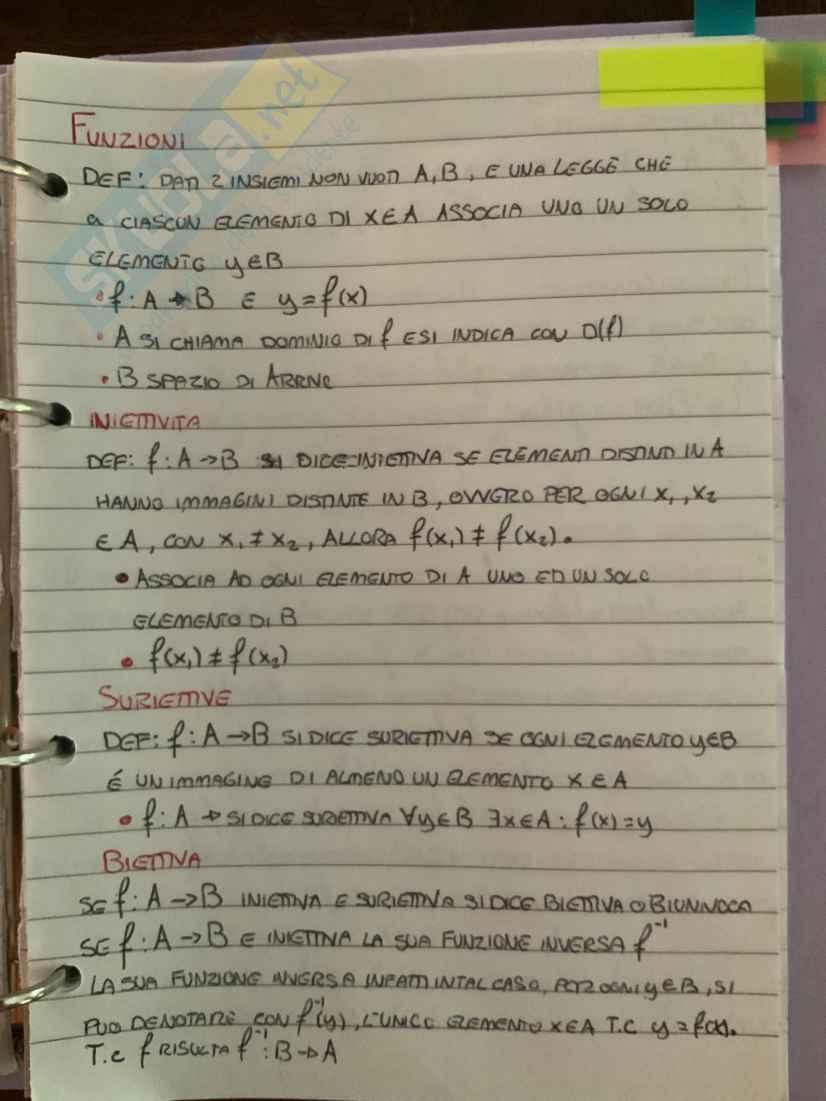 FUNZIONI
DEF: DATI 2 INSIEMI NON VUOTI A, B, E UNA LEGGE CHE
a CIASCUN ELEMENTO DI X∈A ASSOCIA UNO UN SOLO
ELEMENTO y∈B
• f: A → B E y = f(x)
• A SI CHIAMA DOMINIO DI f E SI INDICA CON D(f)
• B SPAZIO DI ARRIVO
INIETTIVITA
DEF: f: A → B SI DICE INIETTIVA SE ELEMENTI DISTINTI IN A
HANNO IMMAGINI DISTINTE IN B, OVVERO PER OGNI X₁, X₂
∈ A, CON X₁ ≠ X₂, ALLORA f(x₁) ≠ f(x₂).
• ASSOCIA AD OGNI ELEMENTO DI A UNO ED UN SOLO
ELEMENTO DI B
• f(x₁) ≠ f(x₂)
SURIETTIVE
DEF: f: A → B SI DICE SURIETTIVA SE OGNI ELEMENTO y∈B
É UN IMMAGINE DI ALMENO UN ELEMENTO X ∈ A
• f: A → SI DICE SURIETTIVA ∀y∈B ∃x∈A: f(x) = y
BIETTIVA
SE f: A → B INIETTIVA E SURIETTIVA SI DICE BIETTIVA O BIUNIVOCA
SE f: A → B E INIETTIVA LA SUA FUNZIONE INVERSA f⁻¹
LA SUA FUNZIONE INVERSA INFATTI IN TAL CASO, PER OGNI y∈B, SI
PUO DENOTARE CON f⁻¹(y), L'UNICO ELEMENTO X∈A T.C y = f(x).
T.c f RISULTA f⁻¹: B → A
SKUOLA.net